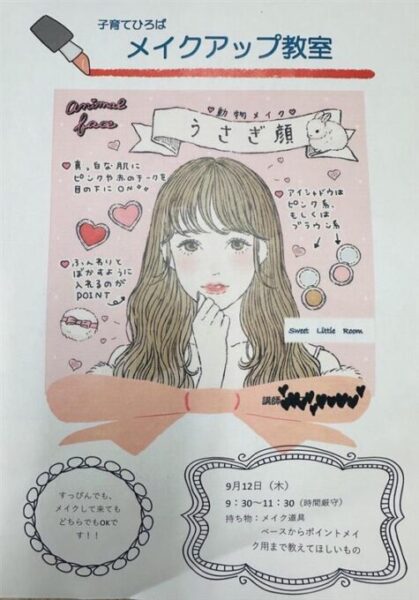 子育てひろば
メイクアップ教室
animal
face
動物メイク
うさぎ顔
真っ白な肌に
ピンクや赤のチークを
目の下にON
アイシャドウは
ピンク系
もしくは
ブラウン系
ふんわりと
ぼかすように
入れるのが
POINT
Sweet Little Room
講師
すっぴんでも、
メイクして来ても
どちらでもOKで
す！！
9月12日（木）
9：30～11：30（時間厳守）
持ち物：メイク道具
ベースからポイントメイ
ク用まで教えてほしいもの